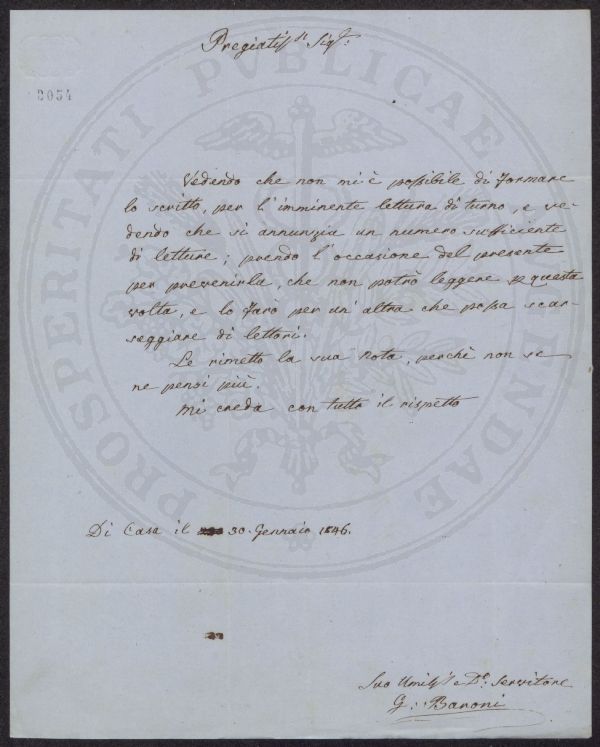 Pregiatiss.e Sig.r:
2054
Vedendo che non mi è possibile di formare
lo scritto, per l'imminente lettura di turno, e ve-
dendo che si annunzia un numero sufficiente
di letture; prendo l'occasione del presente
per prevenirla, che non potrò leggere p questa
volta, e lo farò per un'altra che possa scar-
seggiare di lettori.
Le rimetto la sua Nota, perchè non se
ne pensi più.
Mi creda con tutto il rispetto
Di Casa il 30. Gennaio 1846.
Suo Umiliss.o e D.o Servitore
G. Baroni
PROSPERITATI PUBLICAE AUGENDAE